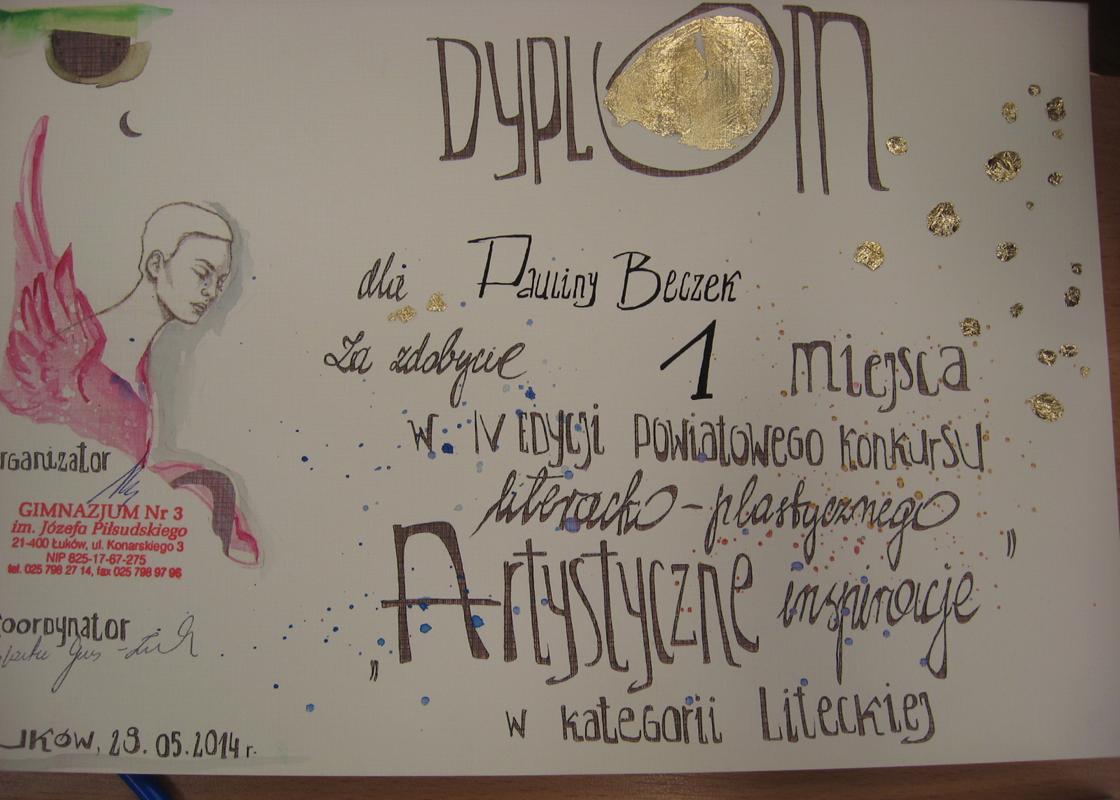 DYPLOM
dla Pauliny Beczek
Za zdobycie 1 miejsca
w IV Edycji powiatowego konkursu
literacko-plastycznego
„Artystyczne inspiracje”
w kategorii Liteckiej
rganizator
GIMNAZJUM Nr 3
im. Józefa Piłsudskiego
21-400 Łuków, ul. Konarskiego 3
NIP 825-17-67-275
tel. 025 798 27 14, fax 025 798 97 96
oordynator
uków, 29.05.2014 r.